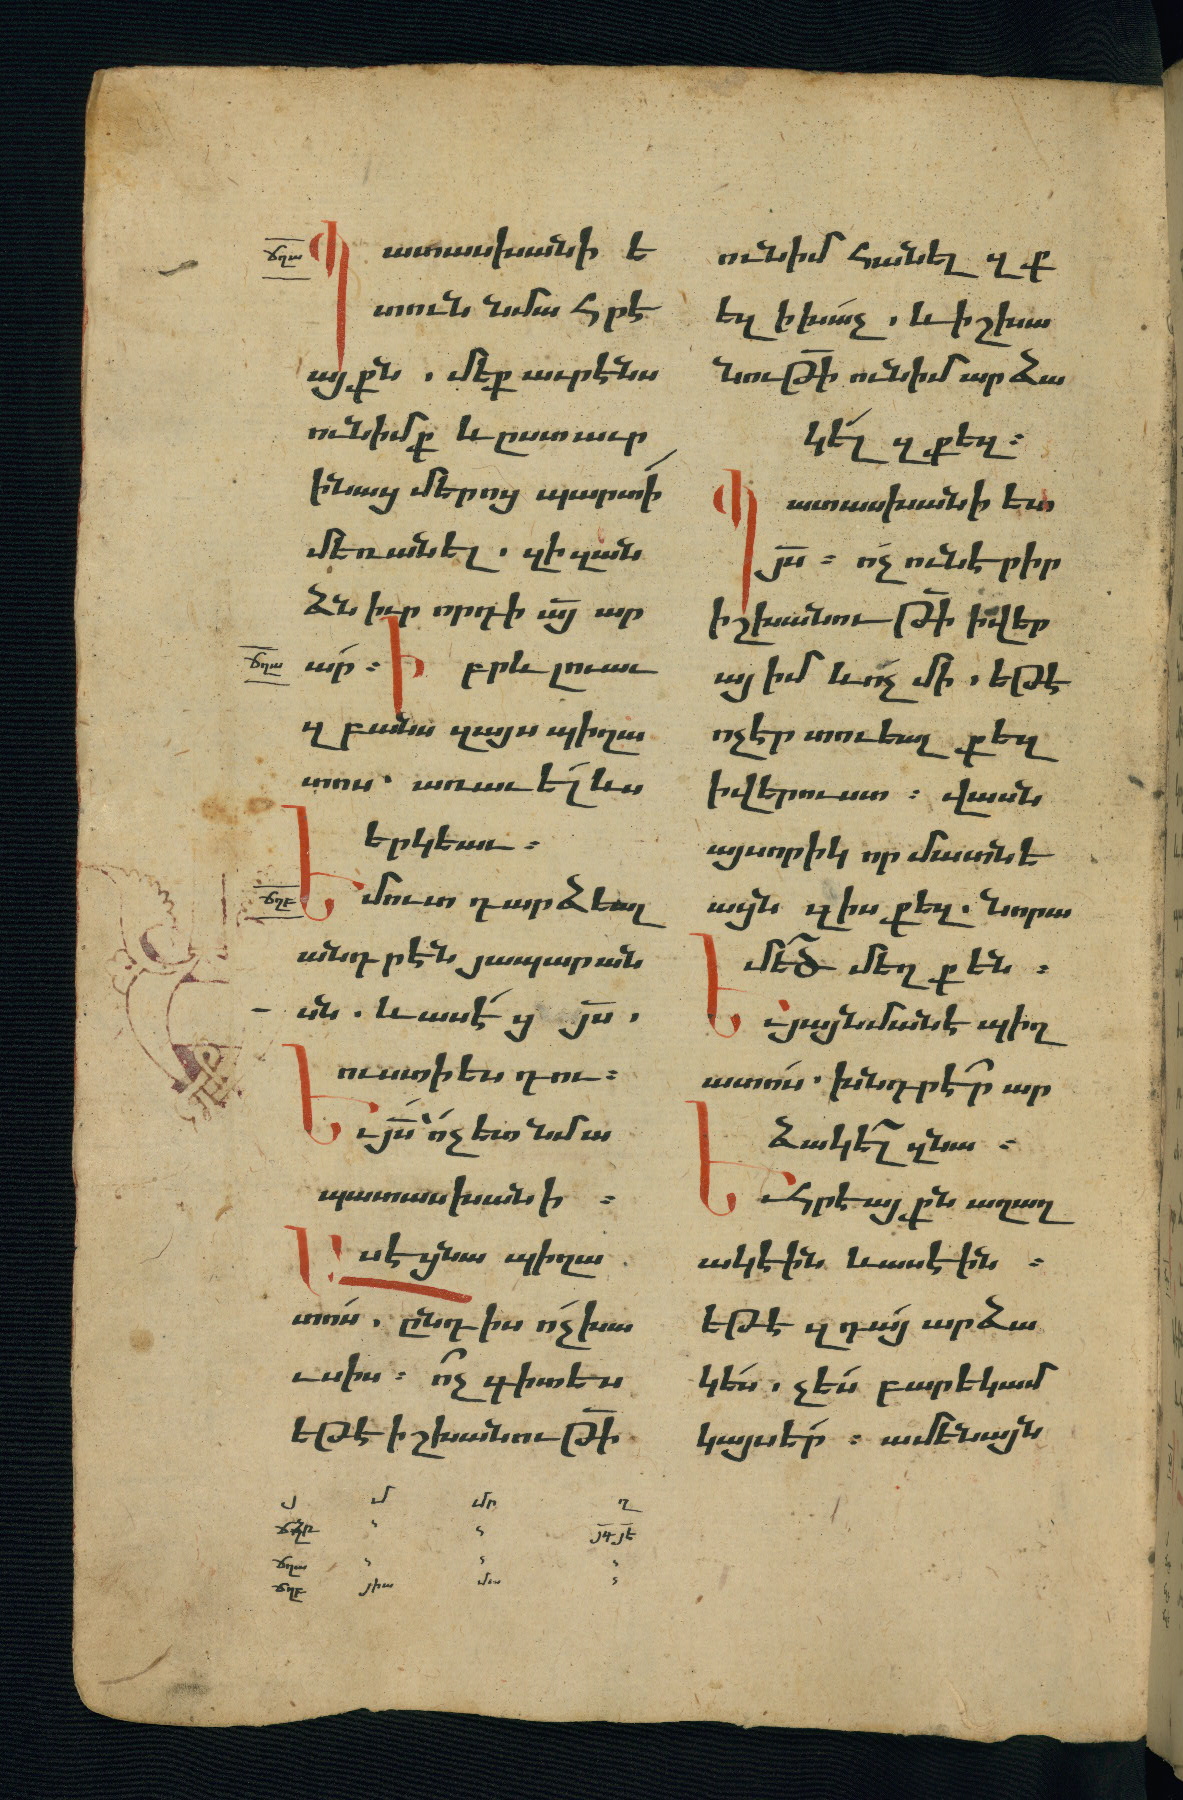 ճղա Պատասխանի ե
տուն նմա հրէ
այքն . մեք աւրէնս
ունիմք և ըստ աւր
ինաց մերոց պարտի
մեռանել . զի զան
ձն իւր որդի ա՟յ ար
ճղա ար ։ Իբրև լուաւ
զբանս զայս պիղա
տոս՝ առաւել ևս
երկեաւ ։
ճղբ Եմուտ դարձեալ
անդրէն յապարան
սն . և ասէ ց յ՟ս .
ուստի ես դու ։
Եւ յ՟ս՝ ոչ ետ նմա
պատասխանի ։
Ասէ ցնա պիղա
տոս . ընդ իս ոչ խա
ւսիս ։ ոչ գիտես
եթէ իշխանութ՟ի
ունիմ հանել զք
եզ ի խաչ . և իշխա
նութ՟ի ունիմ արձա
կել զքեզ ։
Պատասխանի ետ
յ՟ս ։ ոչ ունէրիր
իշխանութ՟ի ի վեր
այ իմ և ոչ մի . եթէ
ոչ էր տուեալ քեզ
ի վերուստ ։ վասն
այսորիկ որ մատնե
այն զիս քեզ . նորա
մեծ մեղք են ։
Եւ յայնմանէ պիղ
ատոս . խնդրէր ար
ձակել զնա ։
Եւ հրէայքն աղաղ
ակէին և ասէին ։
եթէ զդայ արձա
կես . չես բարեկամ
կայսեր ։ ամենայն
յ մ մր ղ
ճղա
ճղբ յիա մա